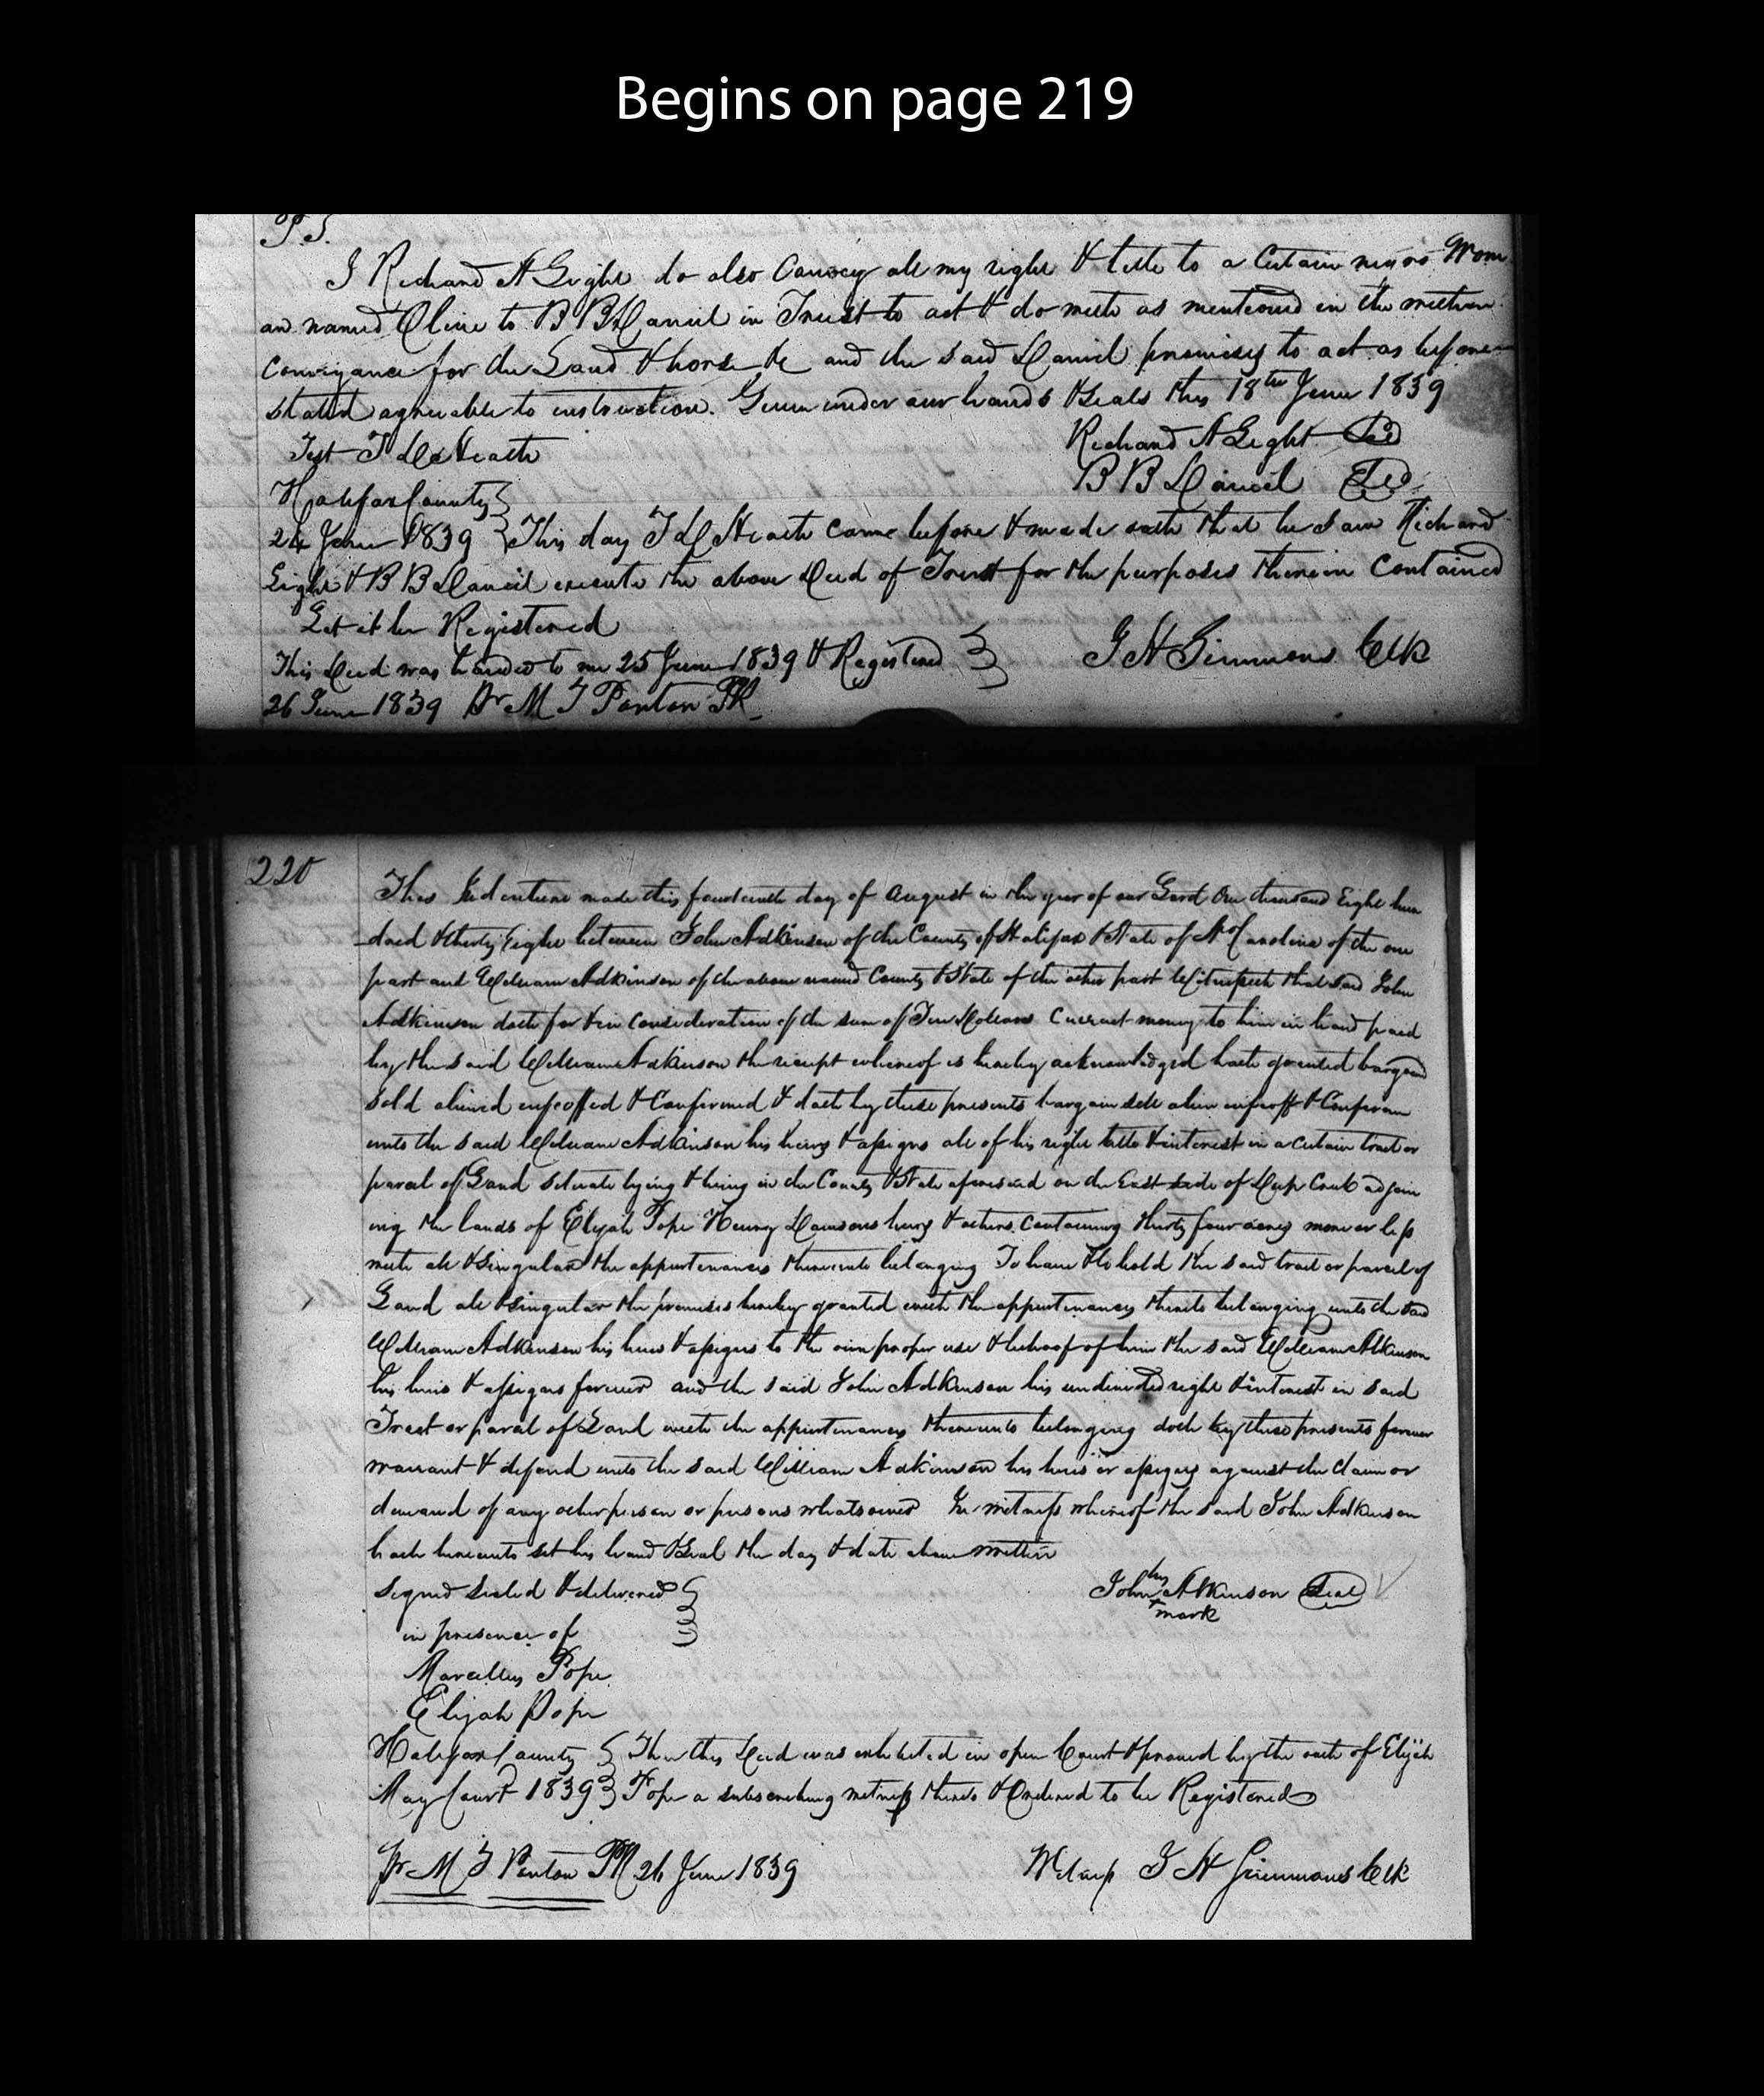 Begins on page 219
P.S.
I Richard H Light do also Convey all my right & title to a Certain negro Wom
an named Olive to B B Daniel in Trust to act & do with as mentioned in the written
conveyance for the Land & horse &c and the said Daniel promises to act as before
stated agreeable to instruction. Given under our hands & seals this 18th June 1839
Test T L Heath
Richard H Light Seal
B B Daniel Seal
Halifax County
24 June 1839 This day T L Heath came before & made oath that he saw Richard
Light & B B Daniel execute the above Deed of Trust for the purposes therein Contained
Let it be Registered
J H Simmons Clk
This Deed was handed to me 25 June 1839 & Registered
26 June 1839 Pr M T Ponton PR
220
This Indenture made this fourteenth day of August in the year of our Lord One thousand Eight hun
dred & thirty Eight between John Adkinson of the County of Halifax & State of No Carolina of the one
part and William Adkinson of the above named County & State of the other part Witnesseth that said John
Adkinson doth for & in Consideration of the sum of Ten Dollars Current money to him in hand paid
by the said William Adkinson the receipt whereof is hereby acknowledged hath granted bargand
sold aliened enfeoffed & Confirmed & doth by these presents bargain sell alien enfeoff & Confirm
unto the said William Adkinson his heirs & assigns all of his right title & interest in a certain tract or
parcel of Land situate lying & being in the County & State aforesaid on the East side of Deep Creek adjoin
ing the lands of Elijah Pope Henry Dawsons heirs & others Containing thirty four acres more or less
with all & singular the appurtenances thereunto belonging To have & to hold the said tract or parcel of
Land all & singular the premises hereby granted with the appurtenances thereto belonging unto the said
William Adkinson his heirs & assigns to the own proper use & behoof of him the said William Adkinson
his heirs & assigns forever and the said John Adkinson his undivided right & interest in said
Tract or parcel of Land with the appurtenances thereunto belonging doth by these presents forever
warrant & defend unto the said William Adkinson his heirs or assigns against the claim or
demand of any other person or persons whatsoever In witness whereof the said John Adkinson
hath hereunto set his hand & seal the day & date above written
Signed sealed & delivered
in presence of
his
John Adkinson Seal
mark
Marcellus Pope
Elijah Pope
Halifax County Then this Deed was exhibited in open Court & proved by the oath of Elijah
May Court 1839 Pope a subscribing witness thereto & Ordered to be Registered
Pr M T Ponton PR 26 June 1839
Witness J H Simmons Clk